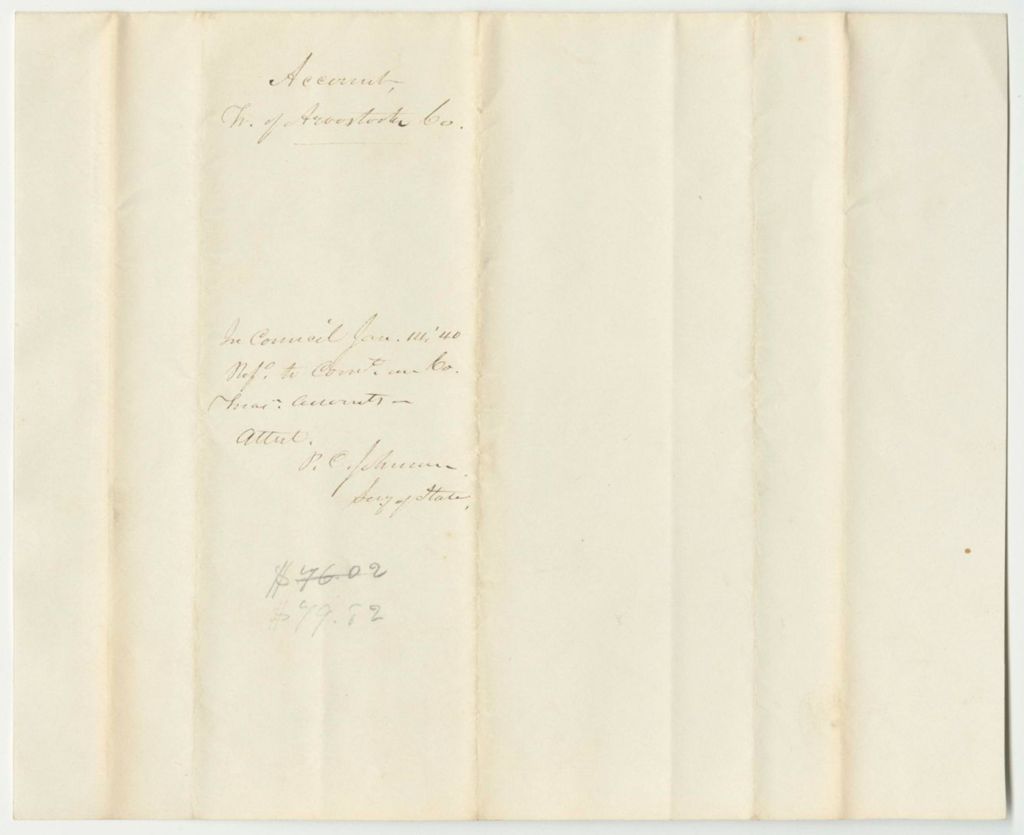 Account,
Tr. of Aroostook Co.
In Council Jan. 14, '40
Refd. to Comte. on Co.
Treasr. accounts –
Attest.
P. C. Johnson
Secy of State,
$76.02
$79.52